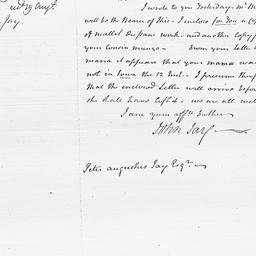 I wrote to you Yesterday - Mr
will be the Bearer of this - I enclose for you a Cop
of mallet Du pan's work - and another Copy f
your Cousin munro - From your Letter
maria it appears that your mama was
not in Town the 12 Inst. - I presume theref
that the enclosed Letter will arrive before
she shall have left it - we are all well
I am your affte. Father
John Jay
Peter augustus Jay Esqr. -
Jay.